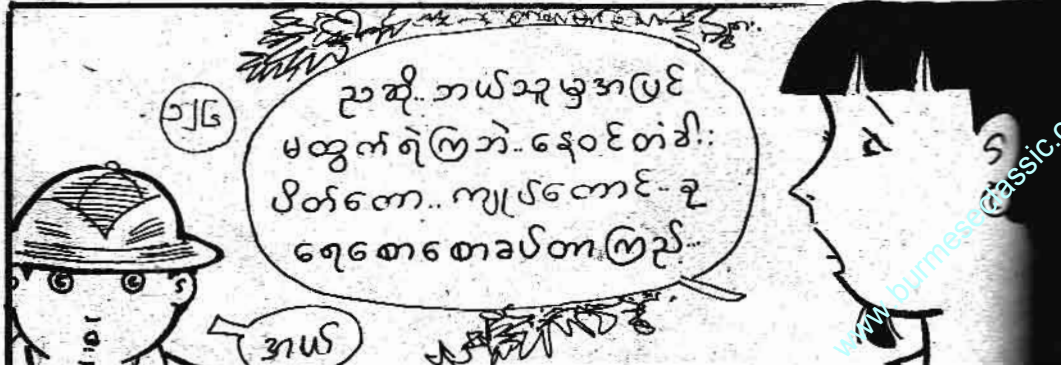 ၁၂၆
ညဆို.. ဘယ်သူမှအပြင်
မထွက်ရဲကြဘဲ.. နေဝင်တံခါး
ပိတ်တော.. ကျုပ်တောင်.. ခု
ရေစောစောခပ်တာကြည့်..
အယ်
www.burmeseclassic.c